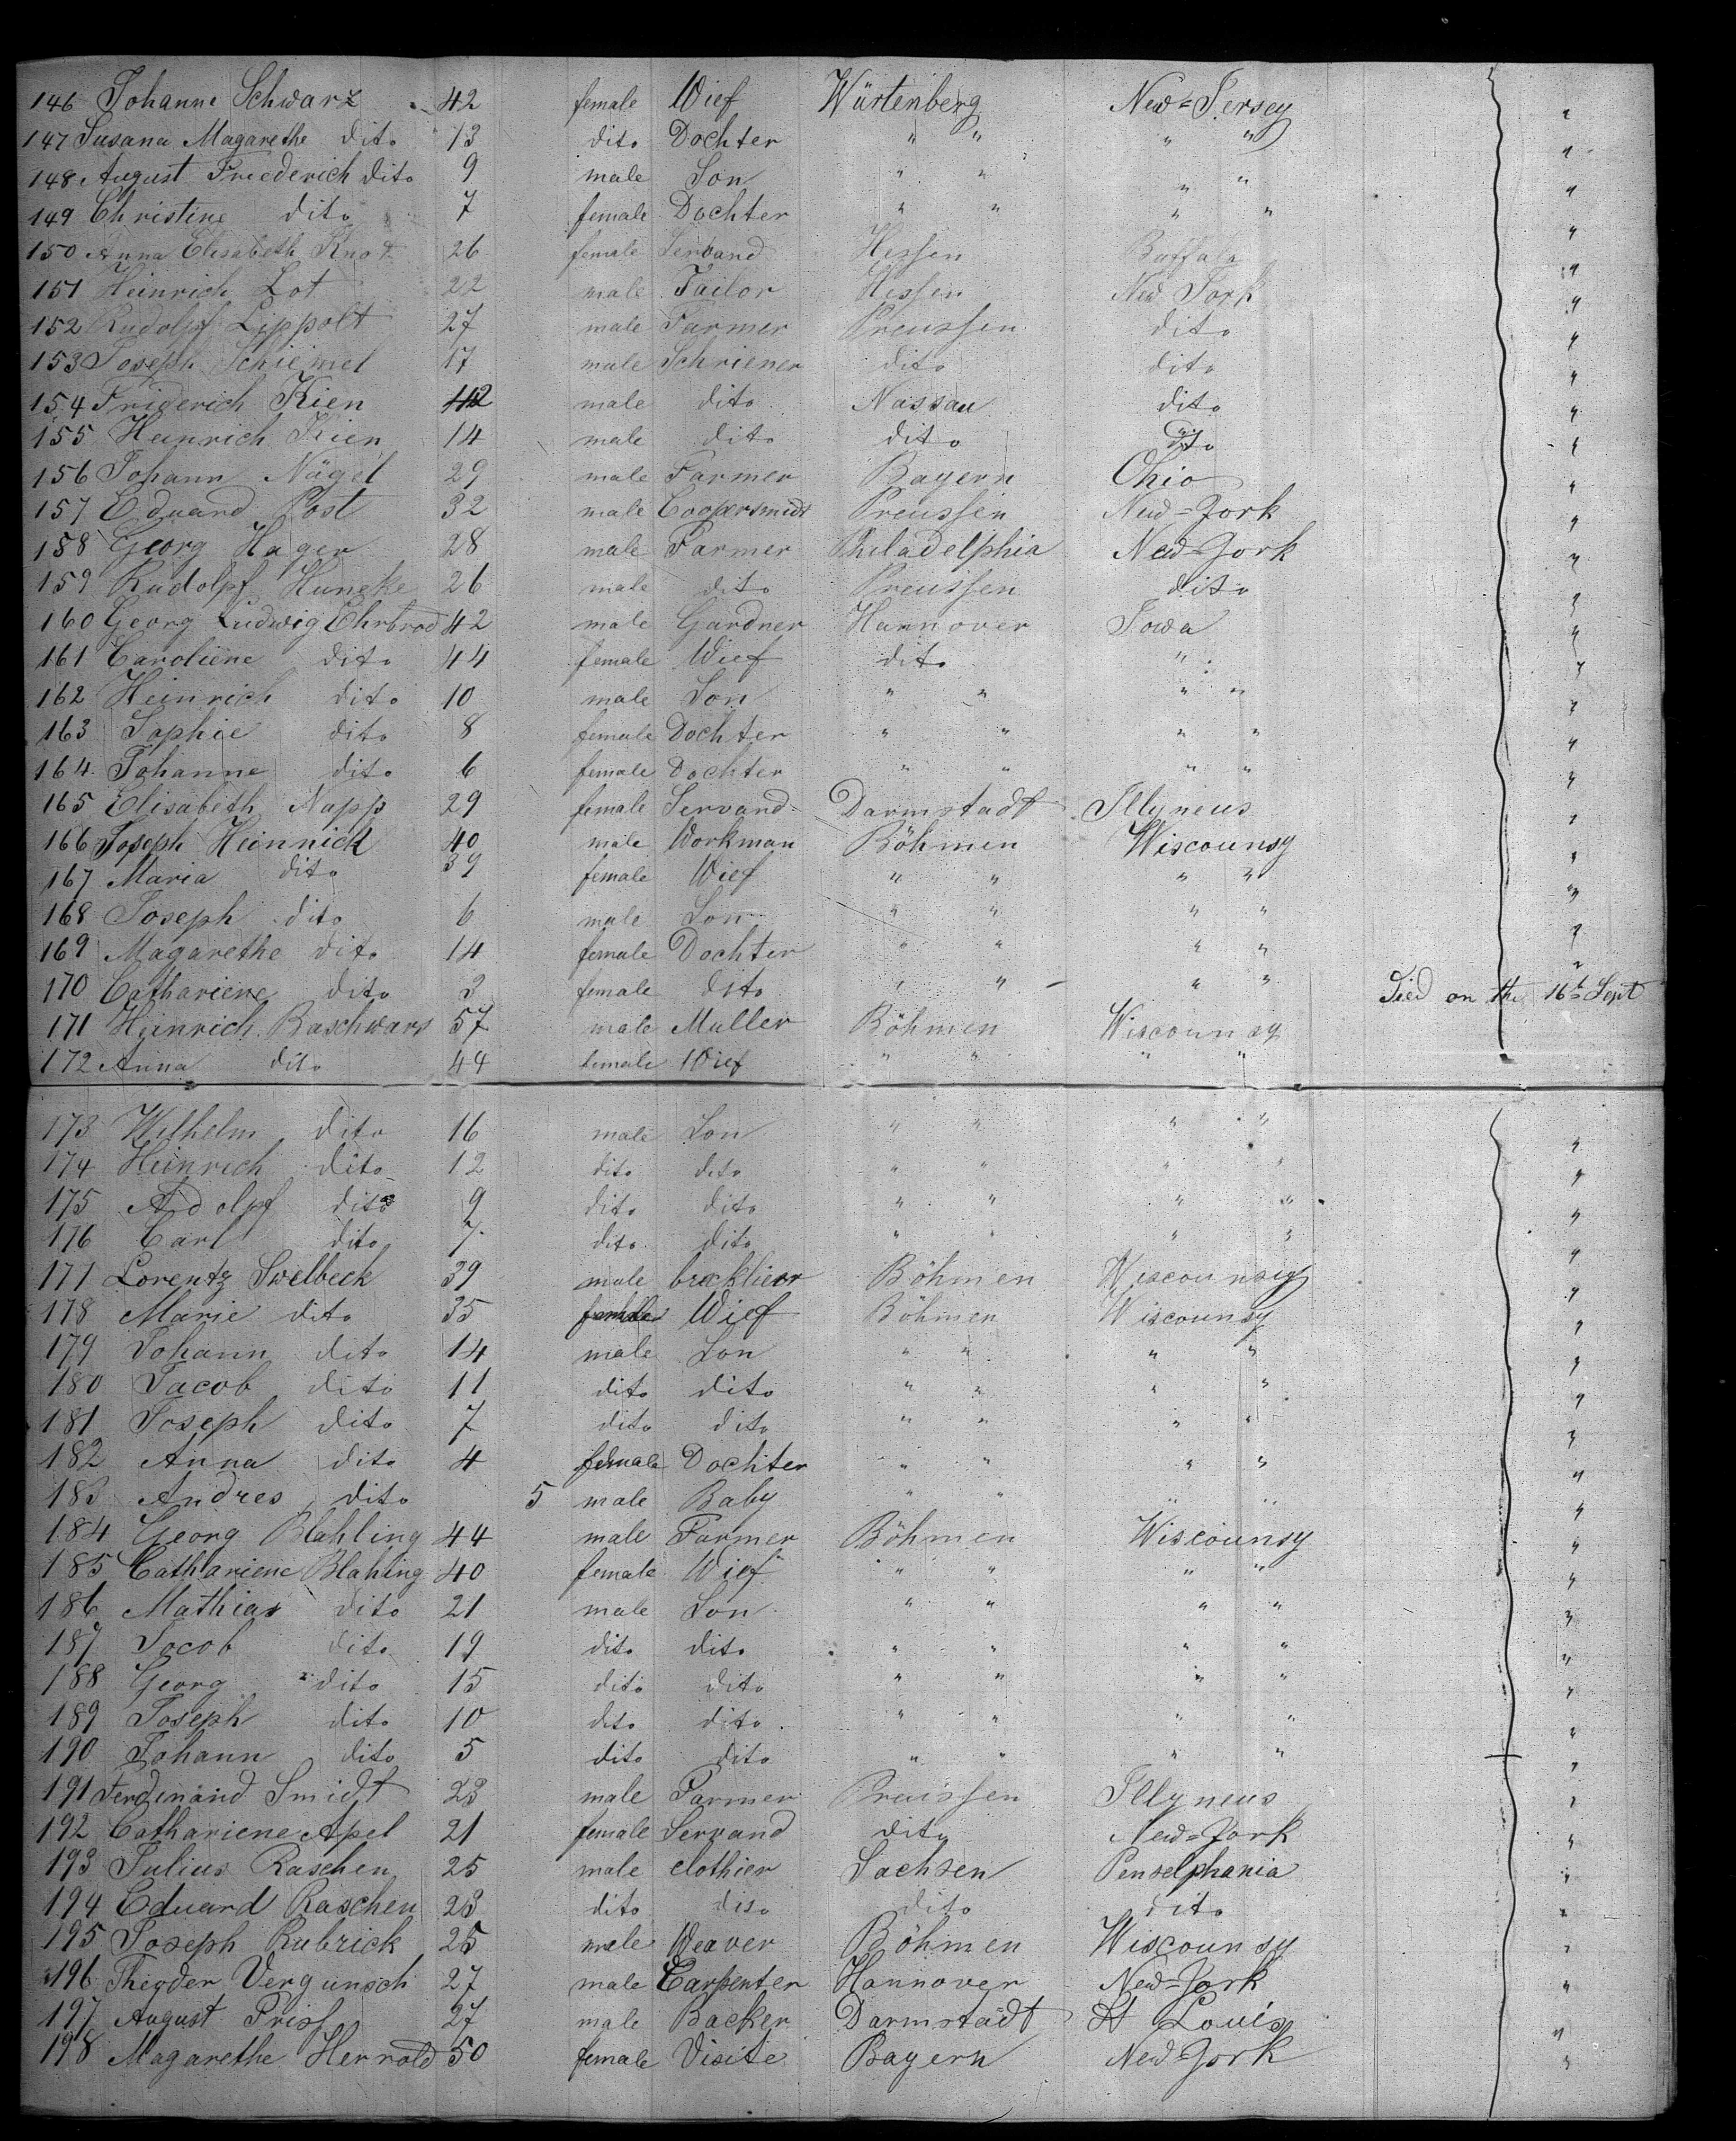 146 Johanne Schwarz 42 female Wief Würtenberg New=Jersey "
147 Susana Magarethe dito 13 dito Dochter " " " " "
148 August Friederich dito 9 male Son " " " " "
149 Christine dito 7 female Dochter " " " " "
150 Anna Elisabeth 26 female Servand Hessen Buffalo "
151 Heinrich Lot 22 male Tailor Hessen New York "
152 Rudolpf Lippolt 27 male Farmer Preussen dito "
153 Joseph Schiemel 17 male Schriener dito dito "
154 Friderich Kien 42 male dito Nassau dito "
155 Heinrich Kien 14 male dito dito dito "
156 Johann Nägel 29 male Farmer Bayern Ohio "
157 Eduard Post 32 male Coopersmidt Preussen New=York "
158 Georg Hager 28 male Farmer Philadelphia New=York "
159 Rudolpf Huneke 26 male dito Preussen dito "
160 Georg Ludwig Ehrbrod 42 male Gardner Hannover Iowa "
161 Caroliene dito 44 female Wief dito " "
162 Heinrich dito 10 male Son " " " " "
163 Sophie dito 8 female Dochter " " " " "
164 Johanne dito 6 female Dochter " " " " "
165 Elisabeth Napp 29 female Servand Darmstadt Illyneus "
166 Joseph Heinnick 40 male Workman Böhmen Wiscounsy "
167 Maria dito 39 female Wief " " " " "
168 Joseph dito 6 male Son " " " " "
169 Magarethe dito 14 female Dochter " " " " "
170 Cathariene dito 3 female dito " " " " Died on the 16th Sept
171 Heinrich Baschwars 57 male Muller Böhmen Wiscounsy
172 Anna dito 44 female Wief " " " "
173 Wilhelm dito 16 male Son " " " " "
174 Heinrich dito 12 dito dito " " " " "
175 Adolpf dito 9 dito dito " " " " "
176 Carl dito 7 dito dito " " " " "
171 Lorentz Swelbeck 39 male Böhmen Wiscounsy "
178 Marie dito 35 female Wief Böhmen Wiscounsy "
179 Johann dito 14 male Son " " " " "
180 Jacob dito 11 dito dito " " " " "
181 Joseph dito 7 dito dito " " " " "
182 Anna dito 4 female Dochter " " " " "
183 Andres dito 5 male Baby " " " " "
184 Georg Blahling 44 male Farmer Böhmen Wiscounsy "
185 Cathariene Blahling 40 female Wief " " " " "
186 Mathias dito 21 male Son " " " " "
187 Jocob dito 19 dito dito " " " " "
188 Georg dito 15 dito dito " " " " "
189 Joseph dito 10 dito dito " " " " "
190 Johann dito 5 dito dito " " " " "
191 Ferdinand Smidt 23 male Farmer Preussen Illyneus "
192 Cathariene Apel 21 female Servand dito New=York "
193 Julius Raschen 25 male clothier Sachsen Penselphania "
194 Eduard Raschen 23 dito dito dito dito "
195 Joseph Rubrick 25 male Weaver Böhmen Wiscounsy "
196 Theoder Vergunsch 27 male Carpenter Hannover New=York "
197 August Friss 27 male Backer Darmstadt St Louis "
198 Magarethe Herrold 50 female Visite Bayern New=York "